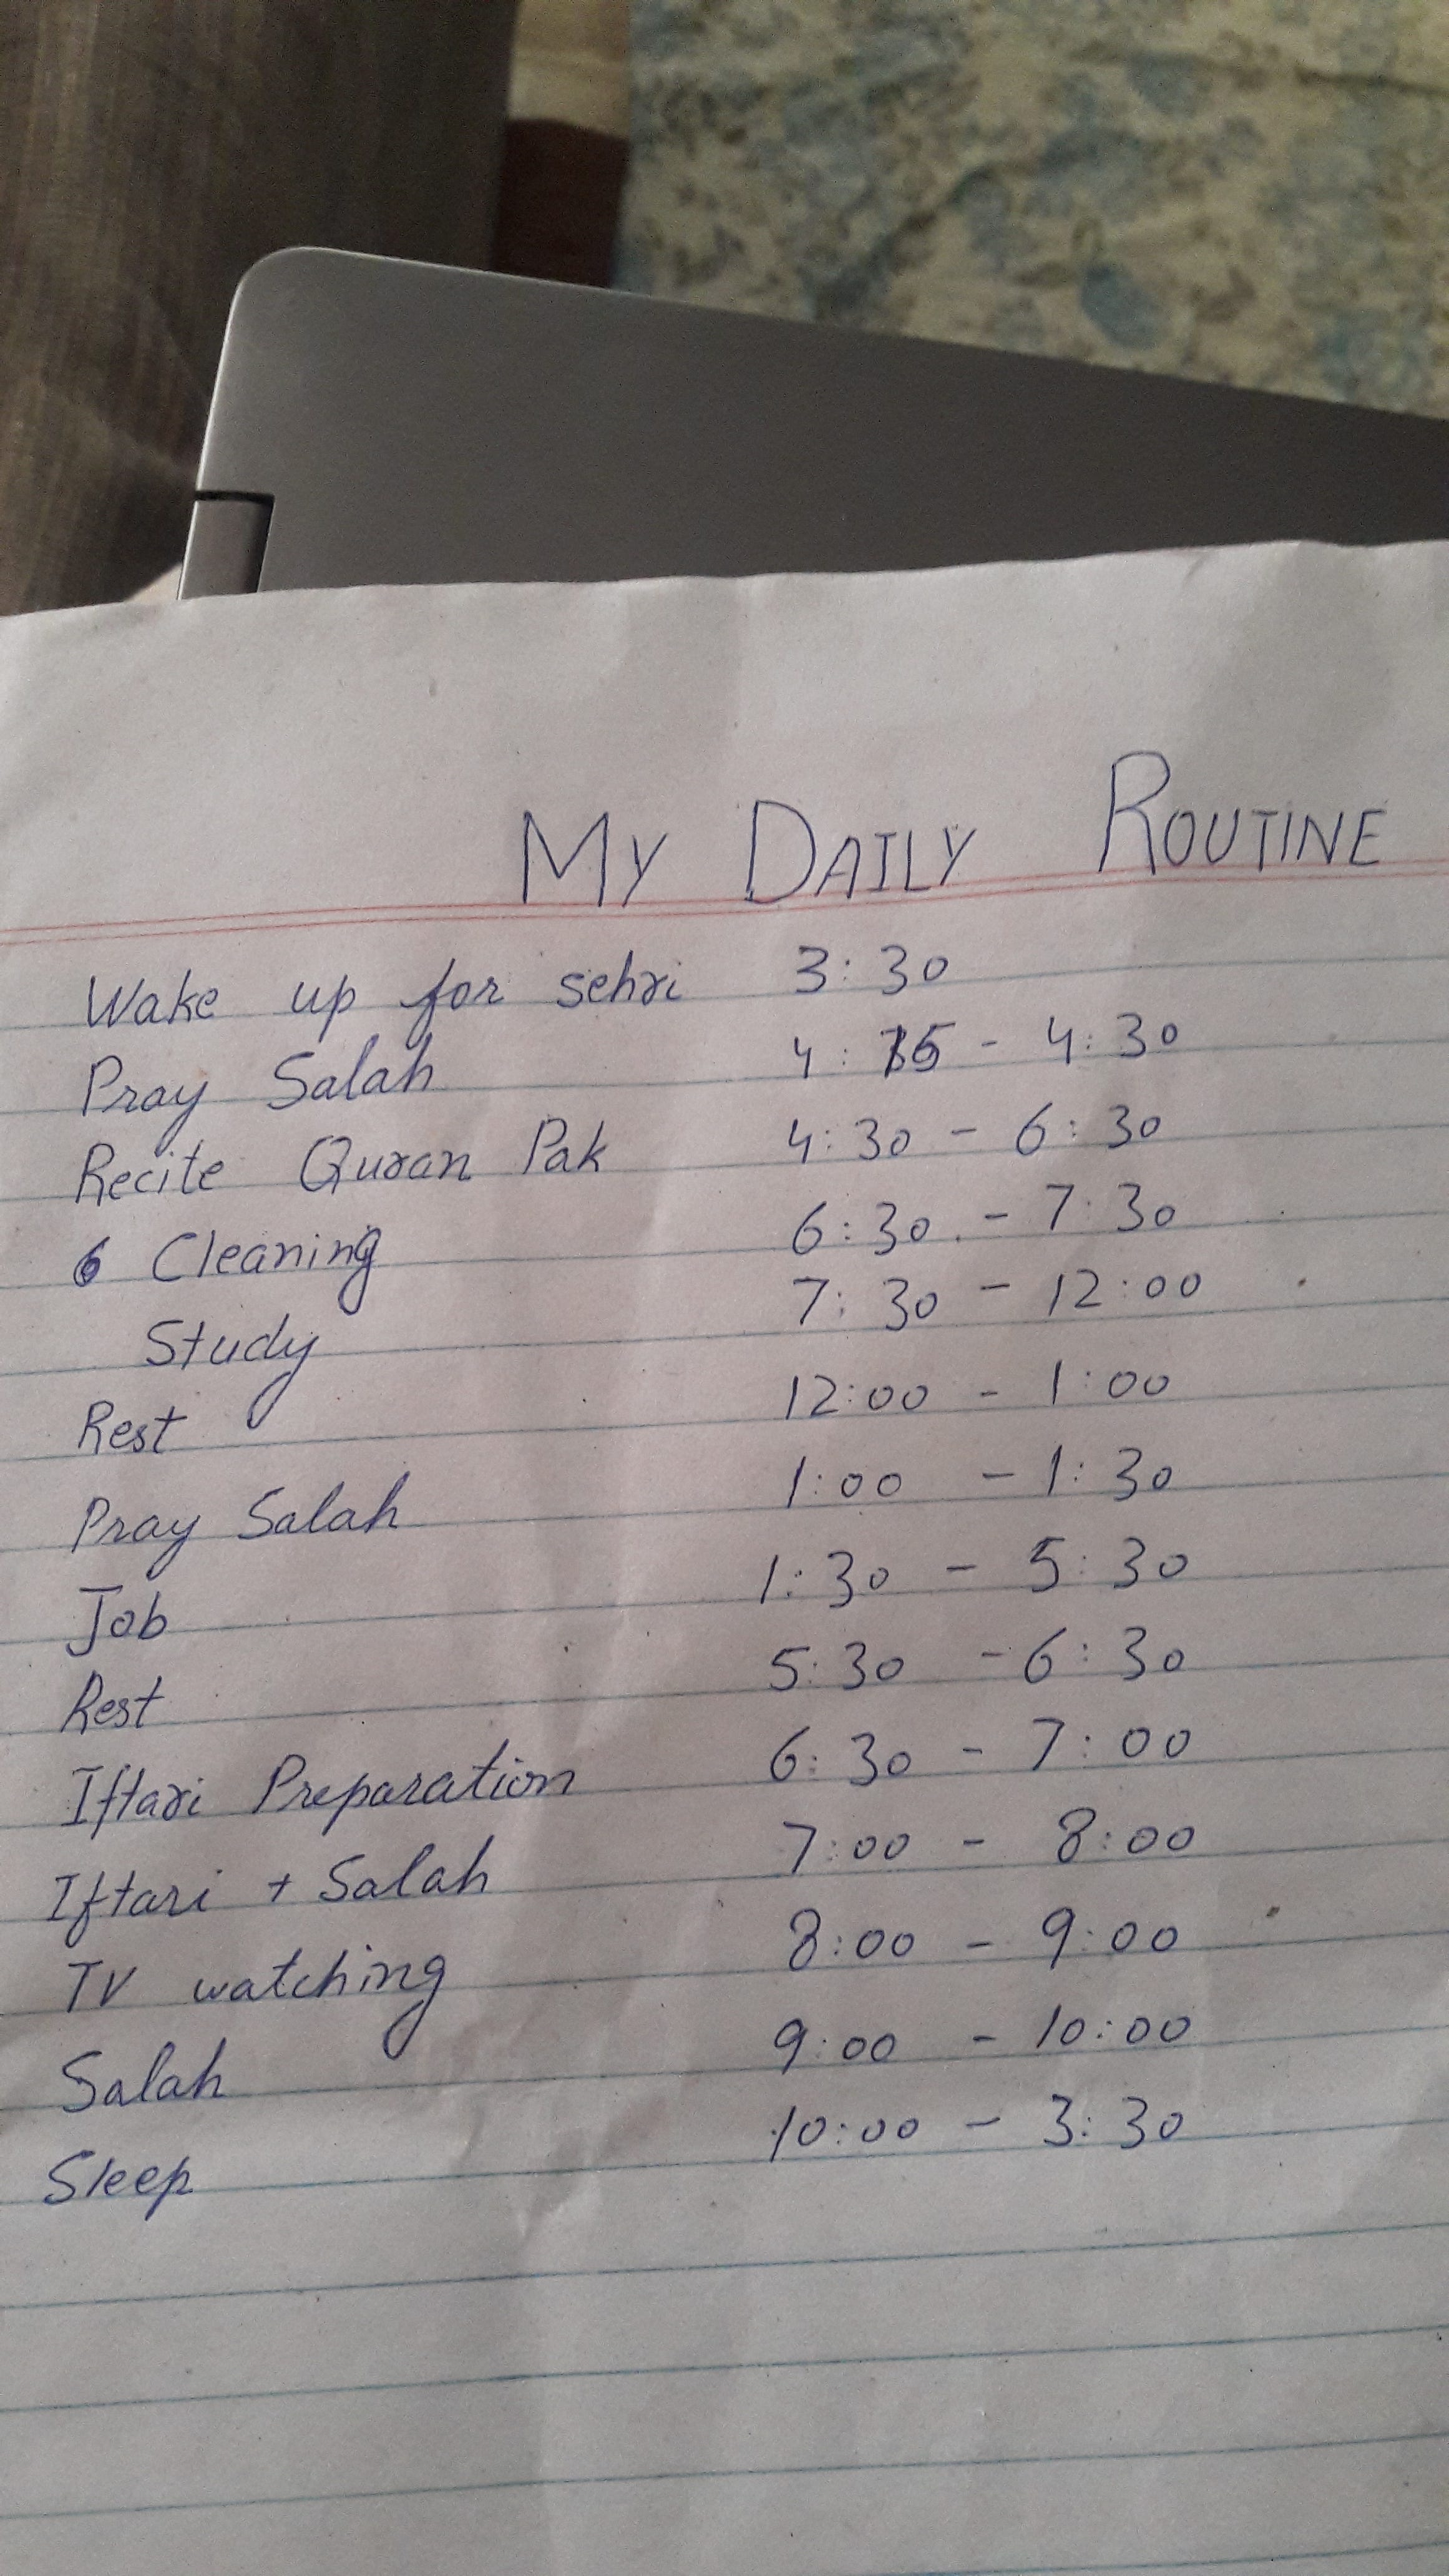 MY DAILY ROUTINE
Wake up for sehri 3:30
Pray Salah 4:15 - 4:30
Recite Quran Pak 4:30 - 6:30
Cleaning 6:30 - 7:30
Study 7:30 - 12:00
Rest 12:00 - 1:00
Pray Salah 1:00 - 1:30
Job 1:30 - 5:30
Rest 5:30 - 6:30
Iftari Preparation 6:30 - 7:00
Iftari + Salah 7:00 - 8:00
TV watching 8:00 - 9:00
Salah 9:00 - 10:00
Sleep 10:00 - 3:30